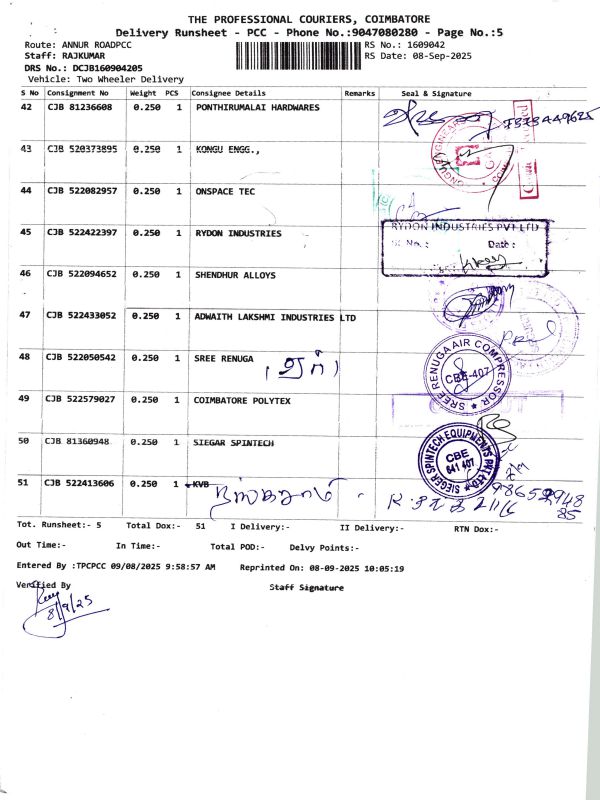 THE PROFESSIONAL COURIERS, COIMBATORE
Delivery Runsheet - PCC - Phone No.:9047080280 - Page No.:5
Route: ANNUR ROADPCC
RS No.: 1609042
Staff: RAJKUMAR
RS Date: 08-Sep-2025
DRS No.: DCJB160904205
Vehicle: Two Wheeler Delivery
S No Consignment No Weight PCS Consignee Details Remarks Seal & Signature
42 CJB 81236608 0.250 1 PONTHIRUMALAI HARDWARES
43 CJB 520373895 0.250 1 KONGU ENGG.,
44 CJB 522082957 0.250 1 ONSPACE TEC
45 CJB 522422397 0.250 1 RYDON INDUSTRIES
RYDON INDUSTRIES PVT LTD
Sl. No. : Date :
46 CJB 522094652 0.250 1 SHENDHUR ALLOYS
47 CJB 522433052 0.250 1 ADWAITH LAKSHMI INDUSTRIES LTD
48 CJB 522050542 0.250 1 SREE RENUGA
SREE RENUGA AIR COMPRESSOR
CBE-407
49 CJB 522579027 0.250 1 COIMBATORE POLYTEX
50 CJB 81360948 0.250 1 SIEGAR SPINTECH
SIEGER SPINTECH EQUIPMENTS PVT LTD
CBE
641 407
51 CJB 522413606 0.250 1 KVB
Tot. Runsheet:- 5 Total Dox:- 51 I Delivery:- II Delivery:- RTN Dox:-
Out Time:- In Time:- Total POD:- Delvy Points:-
Entered By :TPCPCC 09/08/2025 9:58:57 AM Reprinted On: 08-09-2025 10:05:19
Verified By Staff Signature
8/9/25